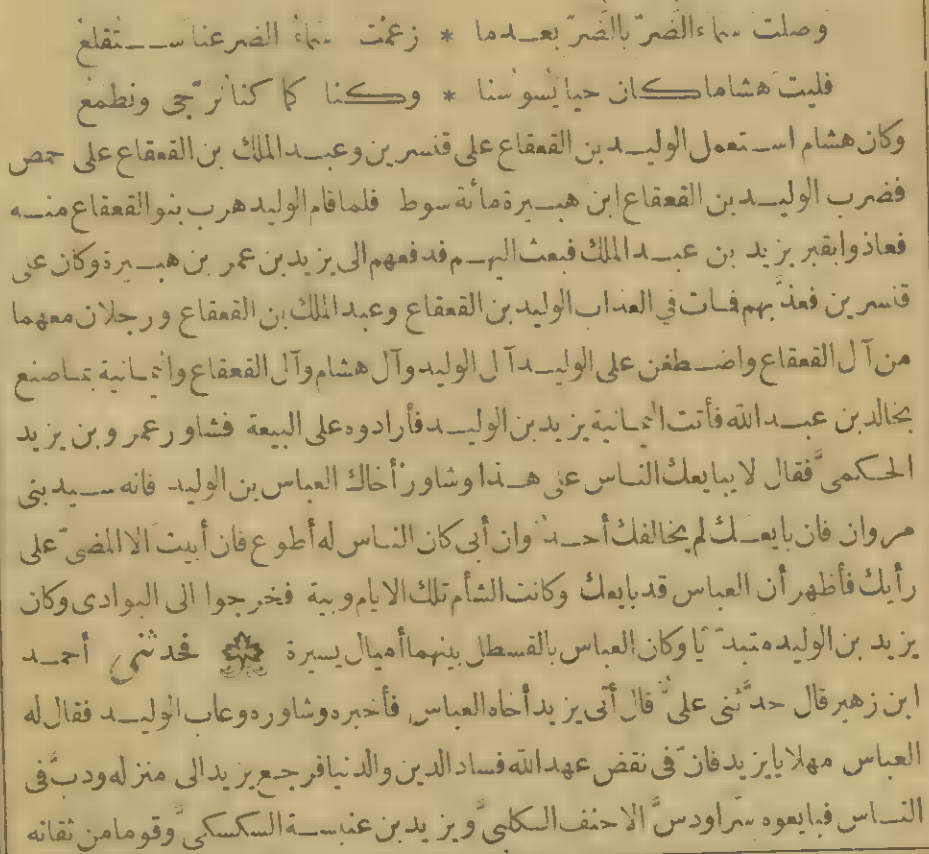 وصلت سماء الضر بالضر بعدما * زعمت سماء الضر عنا ستقلع
فليت هشاما كان حيا يسوسنا * وكنا كما كنا نرجى ونطمع
وكان هشام استعمل الوليد بن القعقاع على قنسرين وعبد الملك بن القعقاع على حمص
فضرب الوليد بن القعقاع ابن هبيرة مائة سوط فلما قام الوليد هرب بنو القعقاع منه
فعاذوا بقبر يزيد بن عبد الملك فبعث اليهم فدفعهم الى يزيد بن عمر بن هبيرة وكان على
قنسرين فعذبهم فمات في العذاب الوليد بن القعقاع وعبد الملك بن القعقاع ورجلان معهما
من آل القعقاع واضطغن على الوليد آل الوليد وآل هشام وآل القعقاع واليمانية بما صنع
بخالد بن عبد الله فأتت اليمانية يزيد بن الوليد فأرادوه على البيعة فشاور عمرو بن يزيد
الحكمىّ فقال لا يبايعك الناس على هذا وشاور أخاك العباس بن الوليد فانه سيد بنى
مروان فان بايعك لم يخالفك أحد وان أبى كان الناس له أطوع فان أبيت الا المضىّ على
رأيك فأظهر أن العباس قد بايعك وكانت الشأم تلك الايام وبية فخرجوا الى البوادى وكان
يزيد بن الوليد متبدّيا وكان العباس بالقسطل بينهما أميال يسيرة فحدثنى أحمد
ابن زهير قال حدّثنى علىّ قال أتى يزيد أخاه العباس فأخبره وشاوره وعاب الوليد فقال له
العباس مهلا يا يزيد فانّ فى نقض عهد الله فساد الدين والدنيا فرجع يزيد الى منزله ودبّ فى
الناس فبايعوه سرا ودسّ الاحنف الكلبىّ ويزيد بن عنبسة السكسكىّ وقوما من ثقاته